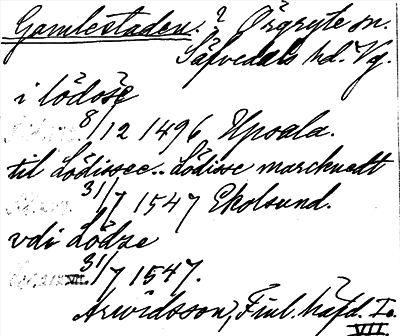 Gamlestaden. ? Örgryte sn.
Säfvedals hd. Vg.
i lödose
8/12 1496 Upsala.
til Lödissee.. Lödisse marcknedt
31/7 1547 Ekolsund.
vdi Lödze
31/7 1547.
Arwidsson, Finl. häfd. I.
VII.